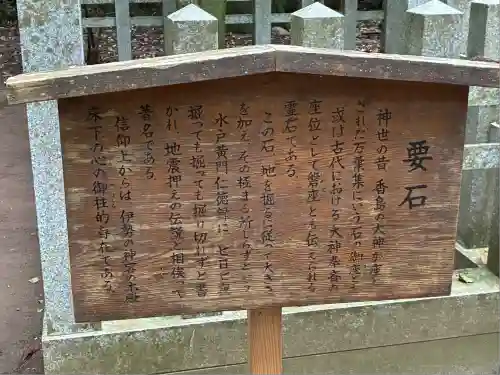 要石
神世の昔 香島の大神が座と
された万葉集にいう石の御座とも
或は古代における大神奉斎の
座位として磐座とも伝えられる
霊石である。
この石、地を掘るに従って大きさ
を加え、その極まる所しらずという
水戸黄門仁徳録に、七日七夜
掘っても掘っても掘り切れずと書
かれ、地震押えの伝説と相俟って
著名である。
信仰上からは、伊勢の神宮の
床下の心の御柱的存在である。